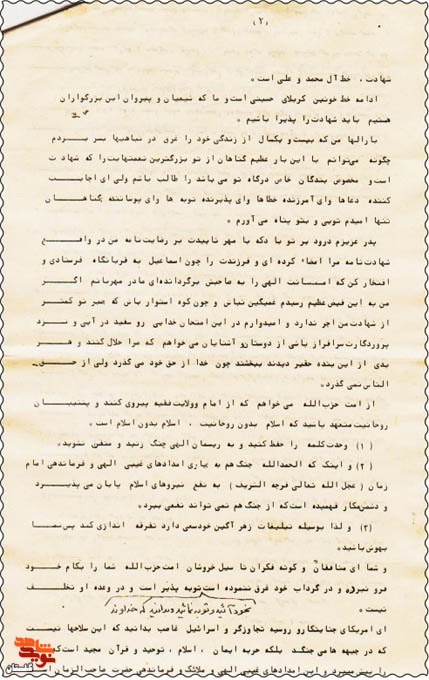 (۲)
شهادت ، خط آل محمد و علی است ۰
ادامه خط خونین کربلای حسینی است و ما که شیعیان و پیروان این بزرگواران
هستیم باید شهادت را پذیرا باشیم ۰
بارالها من که بیست و یکسال از زندگی خود را غرق در تباهیها بسر بردم
چگونه می‌توانم با این بار عظیم گناهان از تو بزرگترین نعمتهایت را که شهادت
است و مخصوص بندگان خاص درگاه تو می‌باشد را طالب باشم ولی ای اجابت
کننده دعاها وای آمرزنده خطاها وای پذیرنده توبه ها وای پوشاننده گناهان
تنها امیدم توئی و بتو پناه می آورم ۰
پدر عزیزم درود بر تو باد که با مهر تاییدت بر رضایت‌نامه من در واقع
شهادت‌نامه مرا امضاء کرده ای و فرزندت را چون اسماعیل به قربانگاه فرستادی و
افتخار کن که امانت الهی را به صاحبش برگردانده‌ای مادر مهربانم اگر
من به این فیض عظیم رسیدم غمگین نباش و چون کوه استوار باش که صبر تو کمتر
از شهادت من اجر ندارد و امیدوارم در این امتحان خدایی رو سفید در آیی و نزد
پروردگارت سرافراز باشی از دوستان و آشنایان می‌خواهم که مرا حلال کنند و هر
بدی از این بنده حقیر دیدند ببخشند چون خدا از حق خود می گذرد ولی از حق
الناس نمی گذرد ۰
از امت حزب‌الله می‌خواهم که از امام و ولایت فقیه پیروی کنند و پشتیبان
روحانیت متعهد باشید که اسلام بدون روحانیت ، اسلام بدون اسلام است ۰
(۱) وحدت کلمه را حفظ کنید و به ریسمان الهی چنگ زنید و متفرق نشوید ۰
(۲) و اینک که الحمدالله جنگ هم به یاری امدادهای غیبی الهی و فرماندهی امام
زمان (عجل الله تعالی فرجه الشریف) به نفع نیروهای اسلام پایان می پذیرد
و دشمن‌مکار فهمیده است که از جنگ هم نمی تواند نفعی ببرد ۰
(۳) و لذا بوسیله تبلیغات زهر آگین خود سعی دارد تفرقه اندازی کند پس شما
بهوش باشید ۰
و شما ای منافقان و کوته فکران تا سیل خروشان امت حزب‌الله شما را بکام خود
فرو نبرده و در گرداب خود غرق ننموده است توبه پذیر است و در وعده او تخلف
نیست ۰
بخود آئید و توبه نمائید و بدانید که خداوند
ای امریکای جنایتکار و روسیه تجاوزگر و اسرائیل غاصب بدانید که این سلاحها نیست
که در جبهه ها می جنگد بلکه حربه ایمان ، اسلام ، توحید و قرآن مجید است که
را پیش میبرد و این امدادهای غیبی الهی و ملائک و فرماندهی حضرت صاحب‌الزمان است
نوید شاهد
گلستان